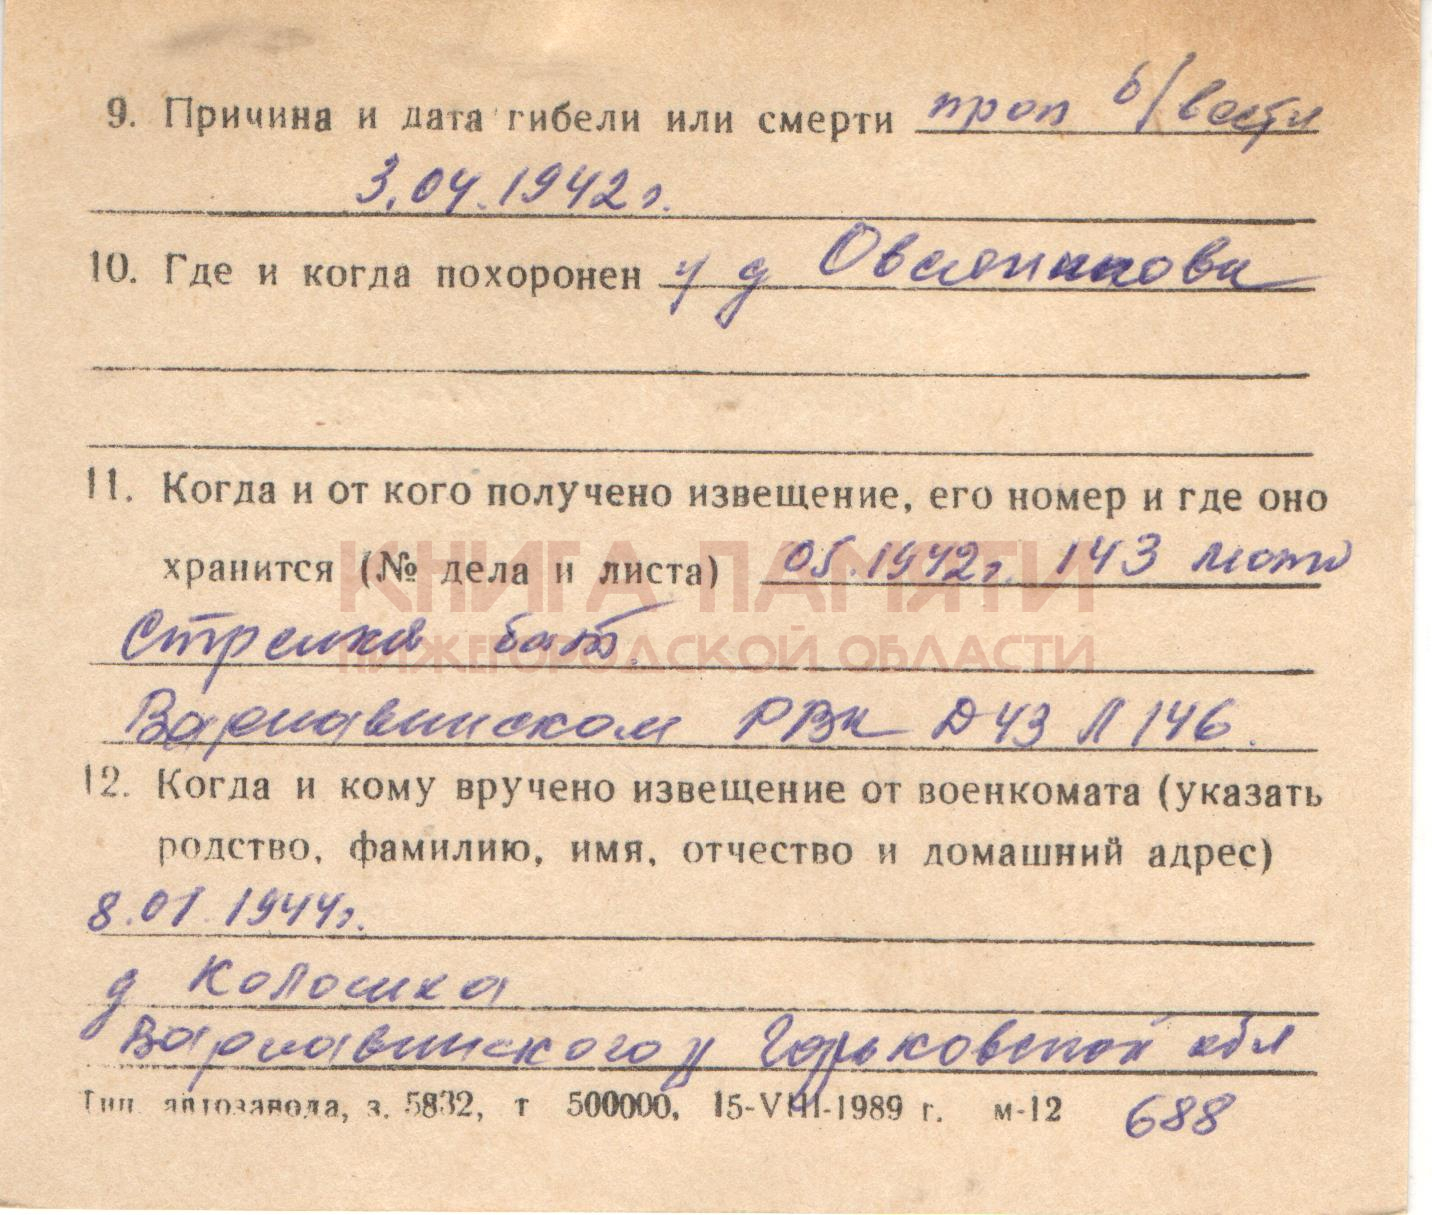 9. Причина и дата гибели или смерти проп б/вести
3.04.1942г.
10. Где и когда похоронен у д Овсянникова
11. Когда и от кого получено извещение, его номер и где оно
хранится (№ дела и листа) 05.1942г. 143 мото
КНИГА ПАМЯТИ
Стрелков бат.
НИЖЕГОРОДСКОЙ ОБЛАСТИ
Варнавинском РВК Д 43 Л 146.
12. Когда и кому вручено извещение от военкомата (указать
родство, фамилию, имя, отчество и домашний адрес)
8.01.1944г.
д Колошка
Варнавинского р Горьковской обл
Тип. автозавода, з. 5832, т 500000, 15-VIII-1989 г. м-12 688